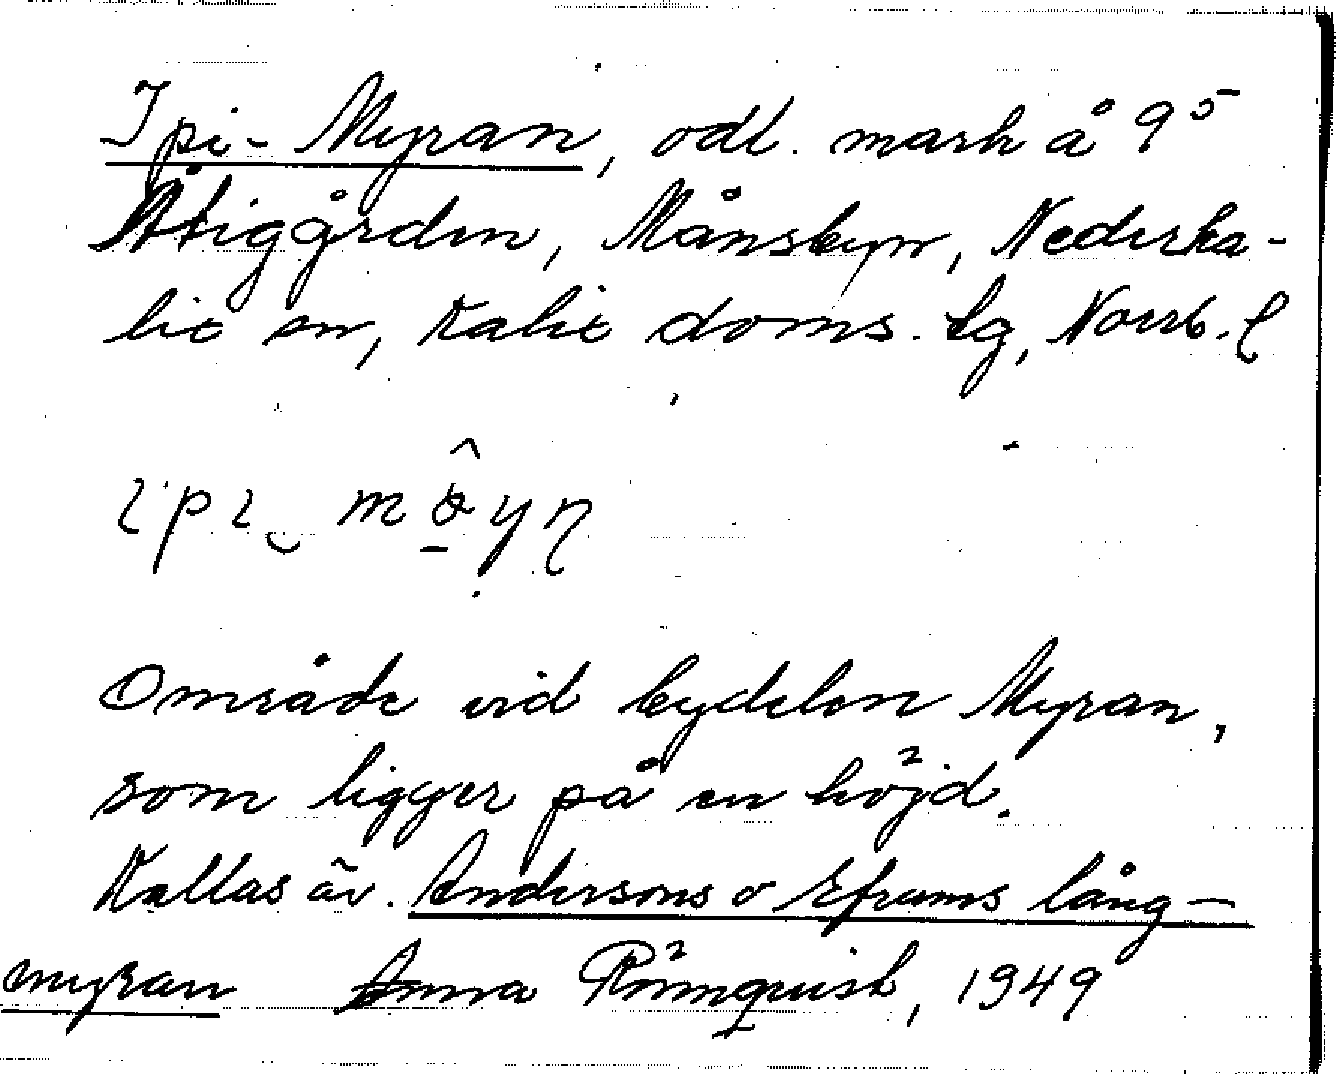 Ipi-Myran, odl. mark å 9⁵
Åtiggården, Månsbyn, Nederka-
lix sn, Kalix doms. lg, Norrb. l
Område vid bydelen Myran,
som ligger på en höjd.
Kallas äv. Anderssons o Eframs lång-
myran Anna Rönnquist, 1949